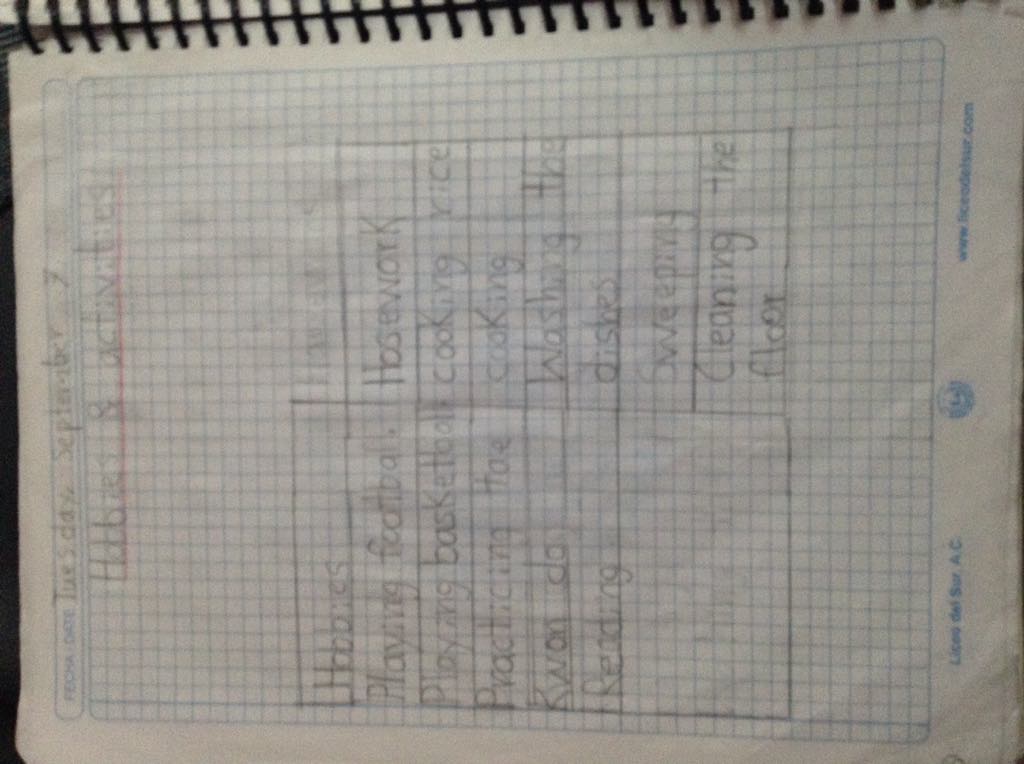 FECHA/DATE Tuesday September 7
Hobbies & activities
Hobbies
Playing football. Hosework
Playing basketball. cooking rice
Practicing tae cooking
Kwon do Washing the
Reading dishes
Sweeping
Cleaning the
floor
Liceo del Sur A.C. www.liceodelsur.com